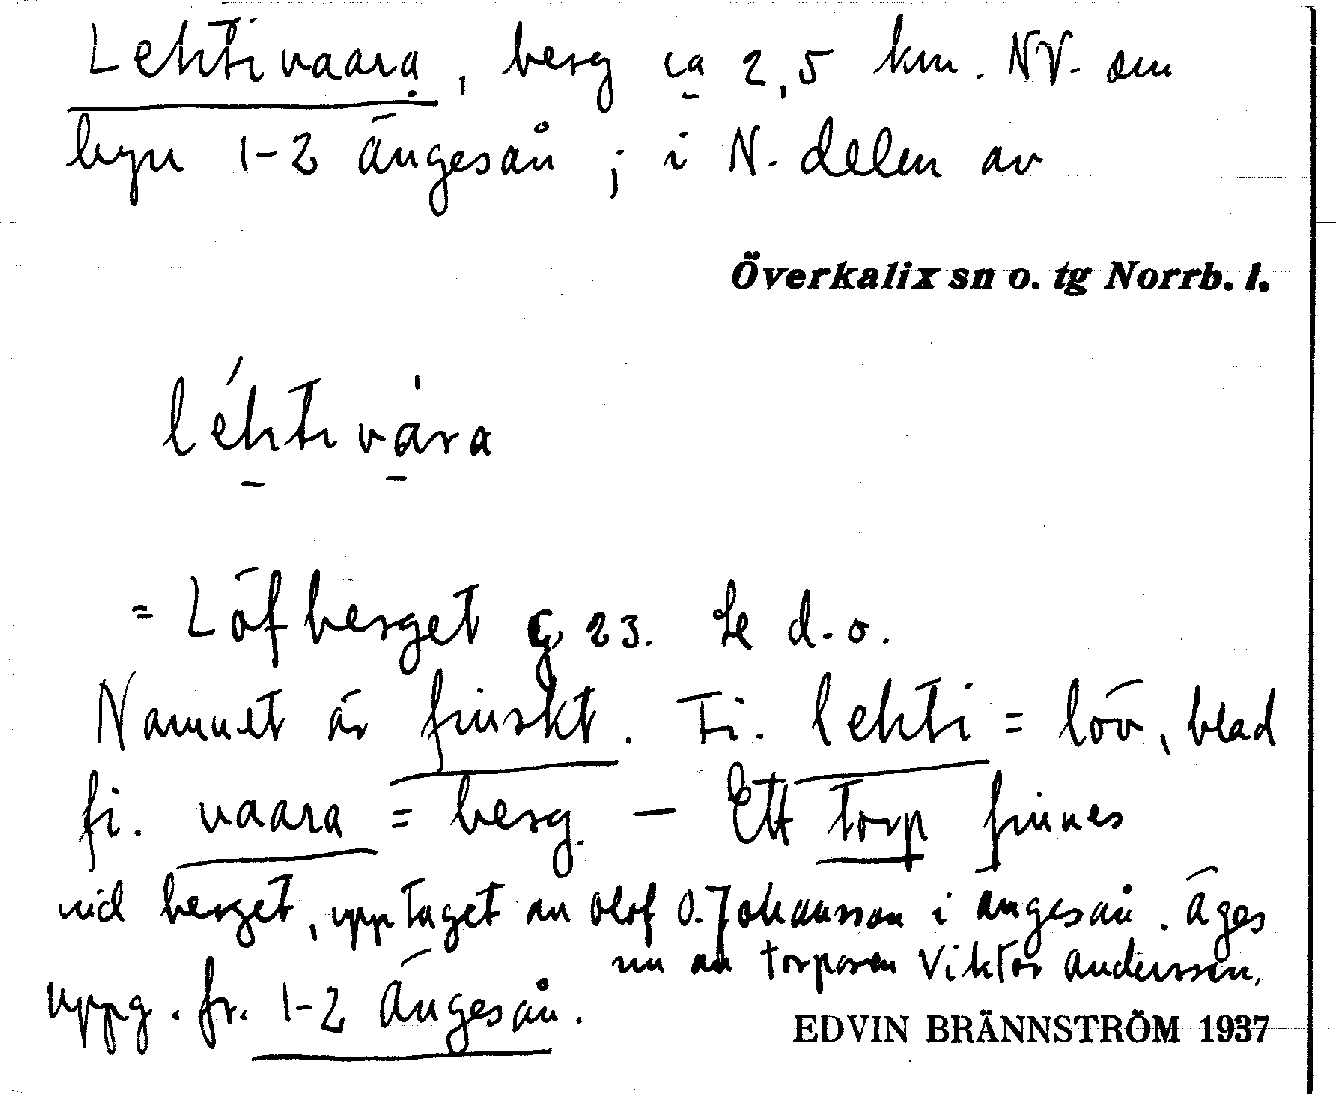 Lehtivaara, berg ca 2,5 km. NV. om
byn 1-2 Ängesån; i N. delen av
Överkalix sn o. tg Norrb. l.
léhtivàra
= Löfberget g 23. Se d.o.
Namnet är finskt. Fi. lehti = löv, blad
fi. vaara = berg. — Ett torp finnes
vid berget, upptaget av Olof O. Johansson i Ängesån. Äges
nu av torparen Viktor Andersson.
Uppg. fr. 1-2 Ängesån.
EDVIN BRÄNNSTRÖM 1937